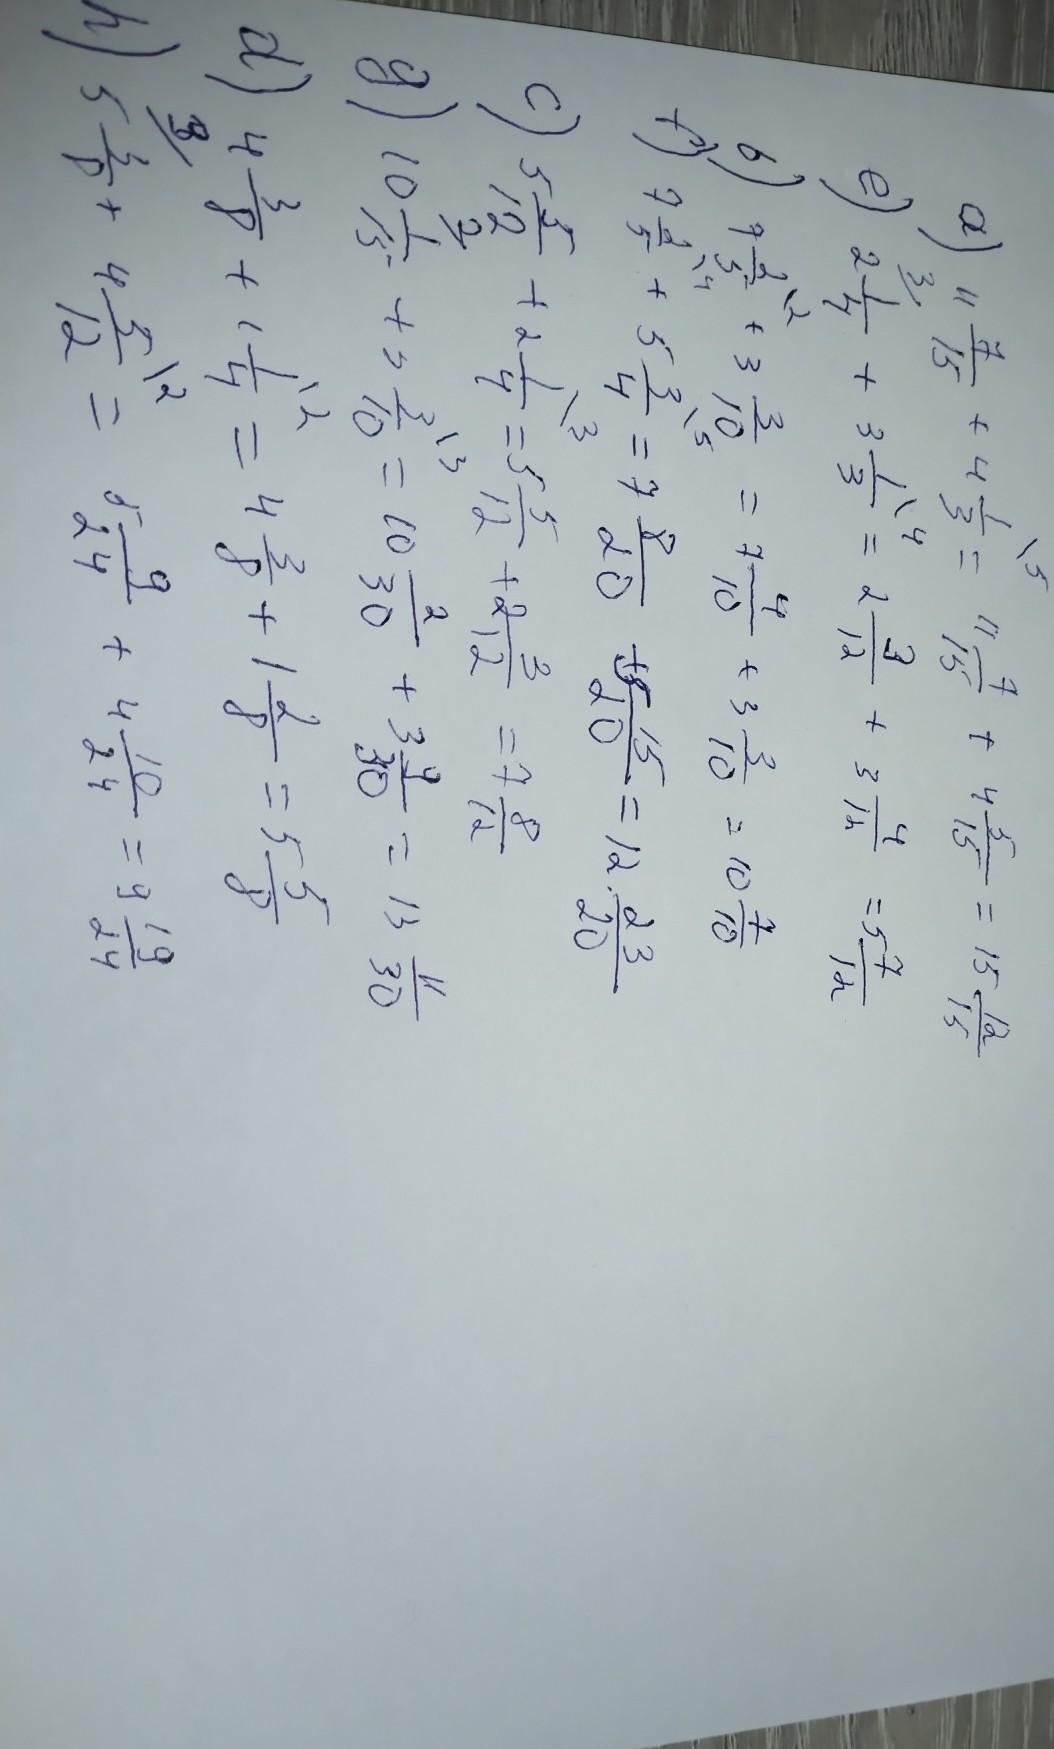 a) 11 7/15 + 4 1/3 \5 = 11 7/15 + 4 5/15 = 15 12/15
e) 3/ 2 1/4 + 3 1/3 \4 = 2 3/12 + 3 4/12 = 5 7/12
b) 7 2/5 \2 + 3 3/10 = 7 4/10 + 3 3/10 = 10 7/10
f) 7 2/5 \4 + 5 3/4 \5 = 7 8/20 + 5 15/20 = 12 23/20
c) 5 5/12 + 2 1/4 \3 = 5 5/12 + 2 3/12 = 7 8/12
g) 2/ 10 1/15 + 3 3/10 \3 = 10 2/30 + 3 9/30 = 13 11/30
d) 4 3/8 + 1 1/4 \2 = 4 3/8 + 1 2/8 = 5 5/8
h) 3/ 5 3/8 + 4 5/12 \2 = 5 9/24 + 4 10/24 = 9 19/24